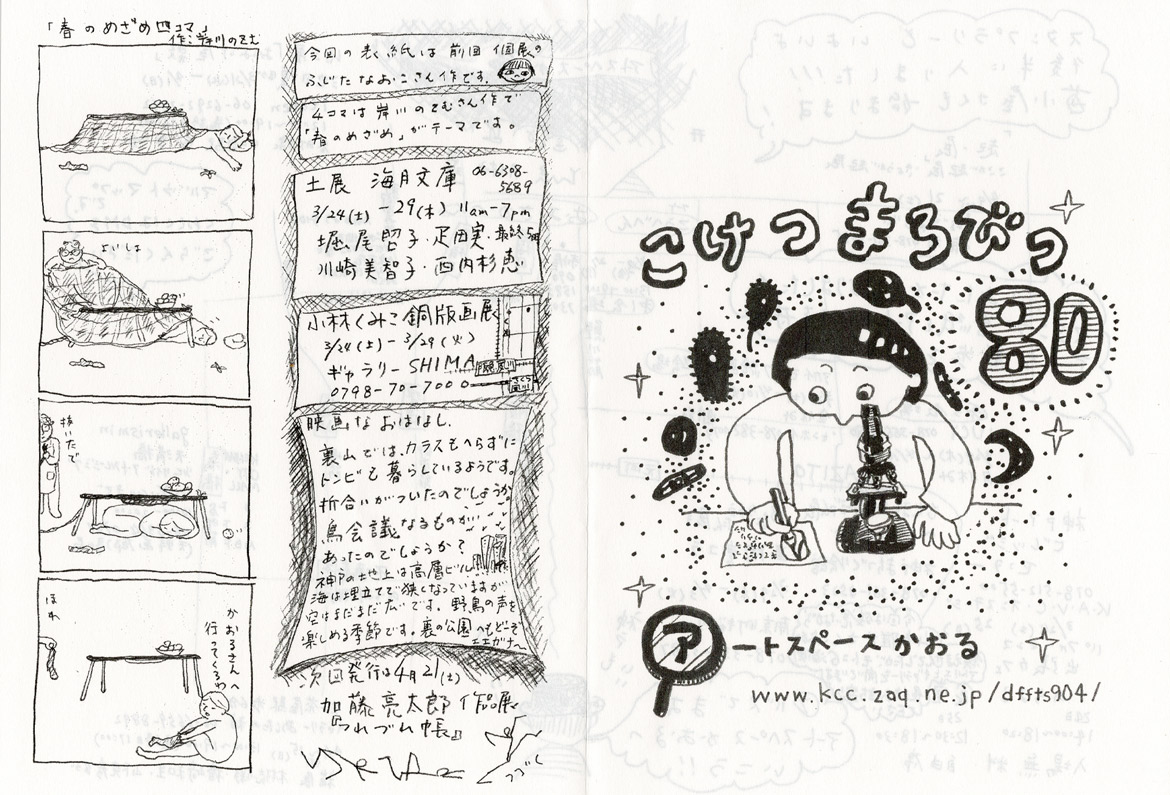 「春のめざめ四コマ」
作:岸川のぞむ
よいしょ
抜いたで
ほわ
かおるさんへ
行ってくるわ
今回の表紙は前回個展の
ふじたなおこさん作です。
4コマは岸川のぞむさん作で
「春のめざめ」がテーマです。
土展 海月文庫 06-6308-
5689
3/24(土)-29(木) 11am-7pm
最終5時
堀尾昭子・疋田実・
川崎美智子・西内杉恵
小林くみこ銅版画展
3/24(土)- 3/29(火)
ギャラリー SHIMA
0798-70-7000
映画なおはなし.
裏山ではカラスもへらずに
トンビと暮らしているようです。
折合いがついたのでしょうか
鳥会議なるものが
あったのでしょうか?
神戸の地上は高層ビル
海は埋立てで狭くなっていますが
空はまだまだ広いです。野鳥の声を
楽しめる季節です。裏の公園へもどこぞ
次回発行は4月21(土)
加藤亮太郎 作品展
『つれづれ帳』
つづく
こけつまろびつ
80
アートスペースかおる
www.kcc.zaq.ne.jp/dffts904/